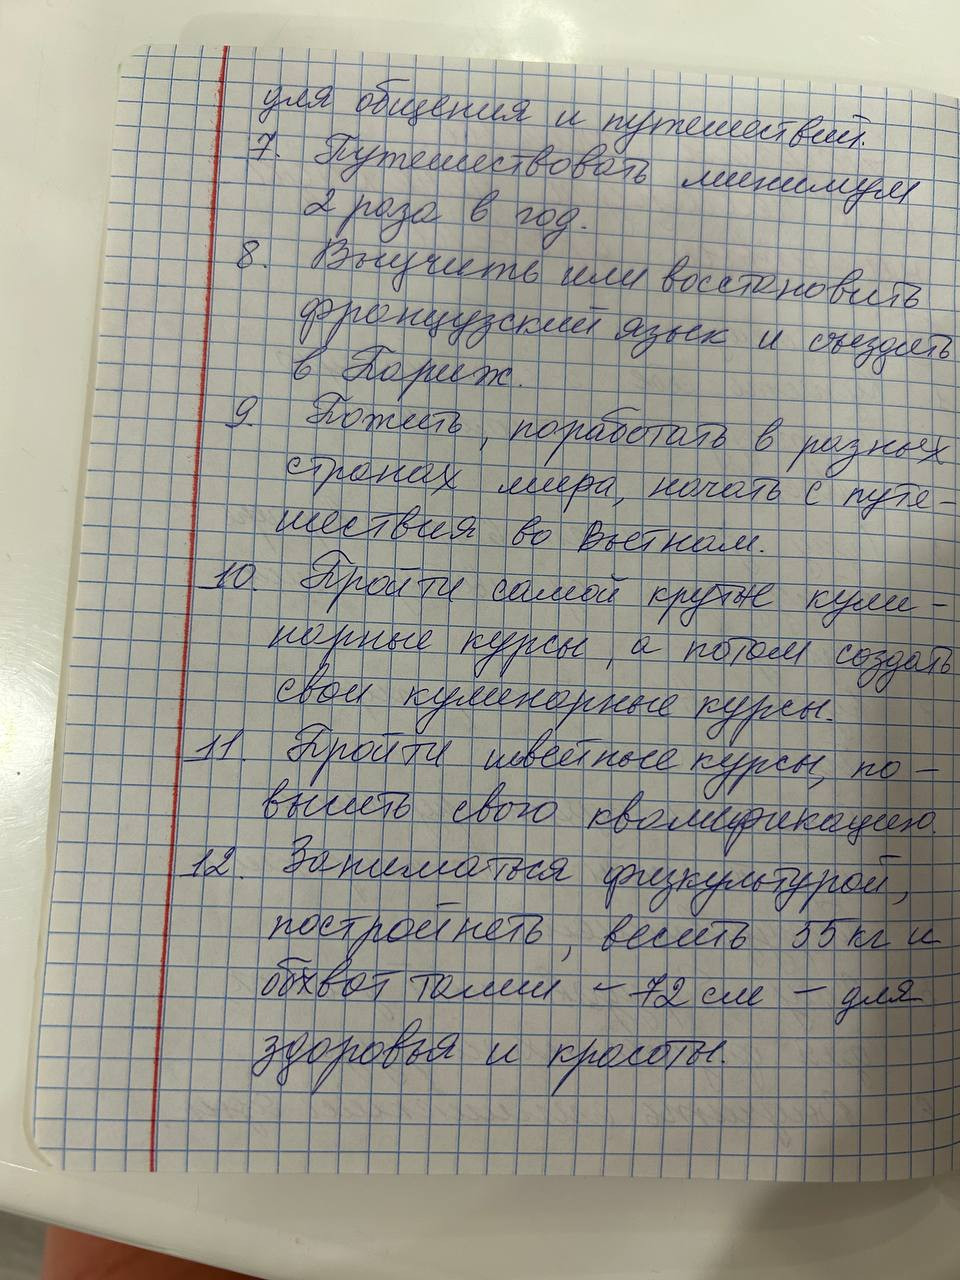 для общения и путешествий.
7. Путешествовать минимум
2 раза в год.
8. Выучить или восстановить
французский язык и съездить
в Париж.
9. Пожить, поработать в разных
странах мира, начать с путе-
шествия во Вьетнам.
10. Пройти самой крутые кули-
нарные курсы, а потом создать
свои кулинарные курсы.
11. Пройти швейные курсы, по-
высить свою квалификацию.
12. Заниматься физкультурой,
постройнеть, весить 55 кг и
обхват талии – 72 см – для
здоровья и красоты.